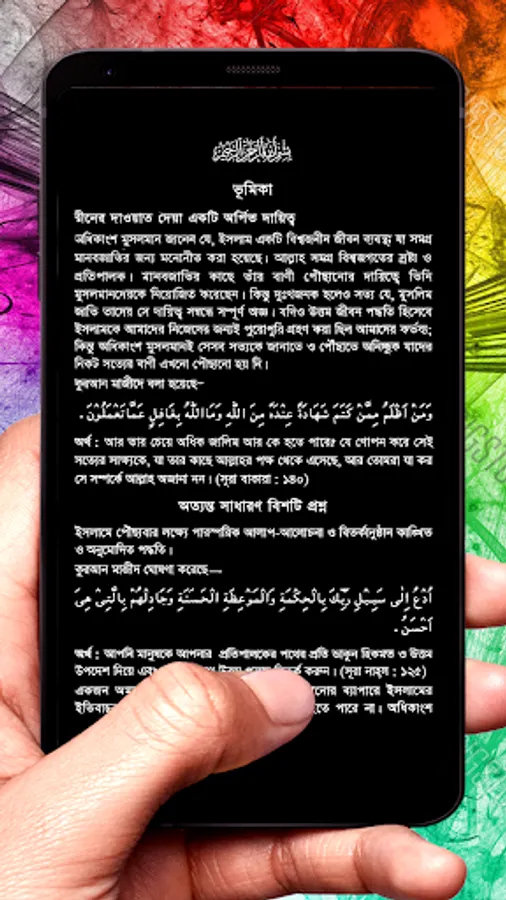 بسم الله الرحمن الرحيم
ভূমিকা
দ্বীনের দাওয়াত দেয়া একটি অর্পিত দায়িত্ব
অধিকাংশ মুসলমান জানেন যে, ইসলাম একটি বিশ্বজনীন জীবন ব্যবস্থা যা সমগ্র
মানবজাতির জন্য মনোনীত করা হয়েছে। আল্লাহ সমগ্র বিশ্বজগতের স্রষ্টা ও
প্রতিপালক। মানবজাতির কাছে তাঁর বাণী পৌঁছানোর দায়িত্বে তিনি
মুসলমানদেরকে নিয়োজিত করেছেন। কিন্তু দুঃখজনক হলেও সত্য যে, মুসলিম
জাতি তাদের সে দায়িত্ব সম্বন্ধে সম্পূর্ণ অজ্ঞ। যদিও উত্তম জীবন পদ্ধতি হিসেবে
ইসলামকে আমাদের নিজেদের জন্যই পুরোপুরি গ্রহণ করা ছিল আমাদের কর্তব্য;
কিন্তু অধিকাংশ মুসলমানই সেসব সত্যকে জানাতে ও পৌঁছাতে অনিচ্ছুক যাদের
নিকট সত্যের বাণী এখনো পৌঁছানো হয় নি।
কুরআন মাজীদে বলা হয়েছে–
وَمَنْ اَظْلَمُ مِمَّنْ كَتَمَ شَهَادَةً عِنْدَهٗ مِنَ اللّٰهِ وَمَا اللّٰهُ بِغَافِلٍ عَمَّا تَعْمَلُوْنَ .
অর্থ : আর তার চেয়ে অধিক জালিম আর কে হতে পারে? যে গোপন করে সেই
সত্যের সাক্ষ্যকে, যা তার কাছে আল্লাহর পক্ষ থেকে এসেছে, আর তোমরা যা কর
সে সম্পর্কে আল্লাহ অজানা নন। (সূরা বাকারা : ১৪০)
অত্যন্ত সাধারণ বিশটি প্রশ্ন
ইসলামে পৌঁছাবার লক্ষ্যে পারস্পরিক আলাপ-আলোচনা ও বিতর্কানুষ্ঠান কাঙ্ক্ষিত
ও অনুমোদিত পদ্ধতি।
কুরআন মাজীদ ঘোষণা করেছে—
اُدْعُ اِلٰى سَبِيْلِ رَبِّكَ بِالْحِكْمَةِ وَالْمَوْعِظَةِ الْحَسَنَةِ وَجَادِلْهُمْ بِالَّتِيْ هِيَ
اَحْسَنُ .
অর্থ : আপনি মানুষকে আপনার প্রতিপালকের পথের প্রতি আহ্বান হিকমত ও উত্তম
উপদেশ দিয়ে এবং করুন। (সূরা নাহল : ১২৫)
একজন ব্যাপারে ইসলামের
হতে পারে না। অধিকাংশ